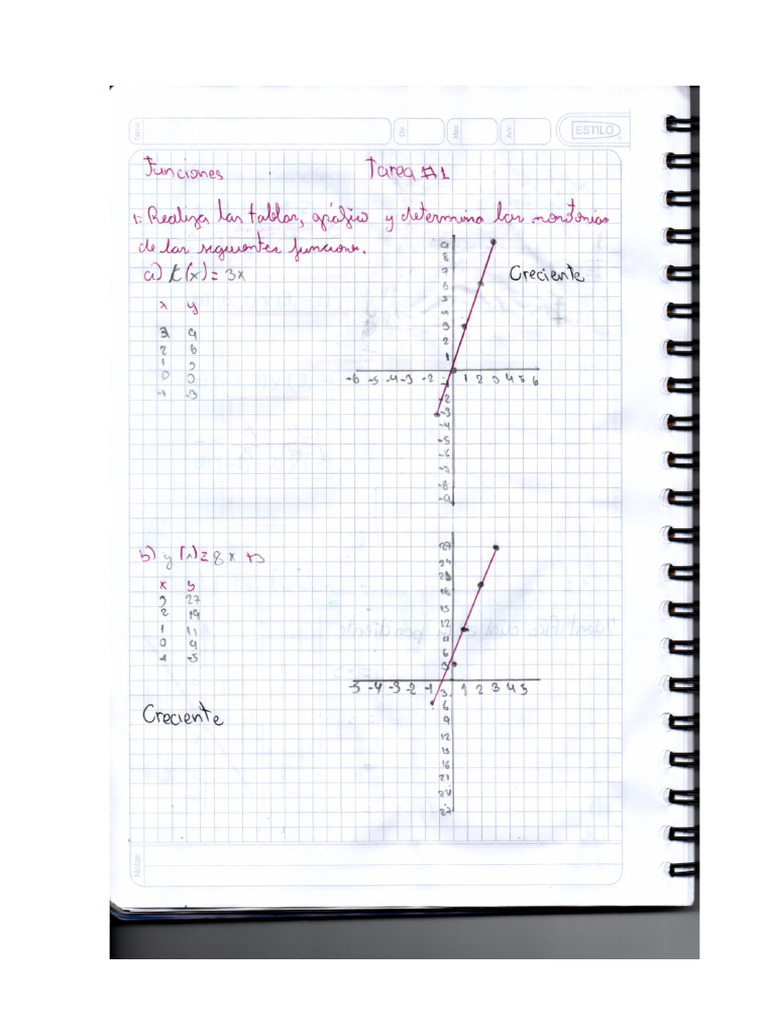 ESTILO
Funciones Tarea #1
1: Realiza las tablas, gráfico y determina las monotonias
de las siguientes funciones.
a) f(x) = 3x Creciente
x y
3 9
2 6
1 3
0 0
-1 -3
9
8
7
6
5
4
3
2
1
-6 -5 -4 -3 -2 1 2 3 4 5 6
-1
-2
-3
-4
-5
-6
-7
-8
-9
b) y(x) = 8x +3
x y
3 27
2 19
1 11
0 9
-1 -5
27
24
21
18
15
12
9
6
3
-5 -4 -3 -2 -1 1 2 3 4 5
3
6
9
12
15
16
21
24
27
Creciente
Notas